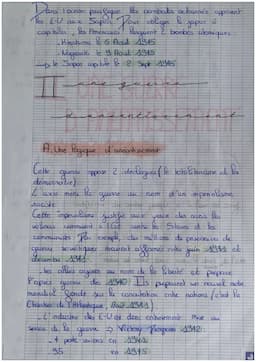 Dans l'océan pacifique les combats acharnés opposent
les E-U aux Japon. Pour obliger le Japon à
capituler, les Américains larguent 2 bombes atomiques :
- Hiroshima le 6 Août 1945
- Nagasaki le 9 Août 1945
→ le Japon capitule le 2 Sept 1945
II une guerre
d'anéantissement
A. Une logique d'anéantissement
Cette guerre oppose 2 idéologies (le totalitarisme et la
démocratie)
L'axe mène la guerre au nom d'un impérialisme
raciste
Cette
communistes Par exemple, des millions de prisonniers de
guerre soviétiques meurent affamés entre juin 1941 et
décembre 1941
les alliés au nom de la liberté et prépare
l'après guerre dès 1940. Ils préparent un nouvel ordre
mondial fondé sur la concertation entre nations (c'est la
Charte de l'Atlantique, Août 1941)
L'industrie des E-U est donc entièrement mise au
service de la guerre → Victory Program 1942:
4 porte avions en 1941
95 en 1945